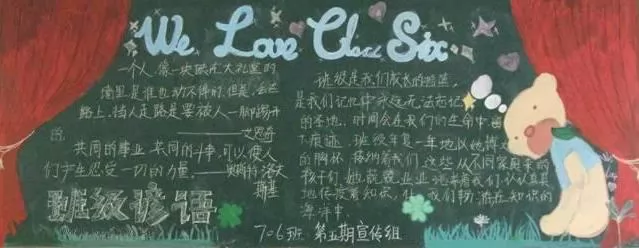 We Love Class Six
一个人,像一块砖在大礼堂的
墙里是谁也动不得的,但是,丢在
路上,挡人走路是要被人一脚踢开
的。
共同的事业,共同的斗争,可以使人
们产生忍受一切的力量。——奥斯特洛夫
斯基
班级谚语
班级是我们成长的地
是我们记忆中永远无法忘记
的圣地。时间会在我们的生命中
痕迹,班级年复一年地以她博
的胸怀,接纳着我们这些从不同家庭来的
孩子们,她兢兢业业
地传授着知识,让我们畅游在知识的
海洋中。
706班 第五期宣传组